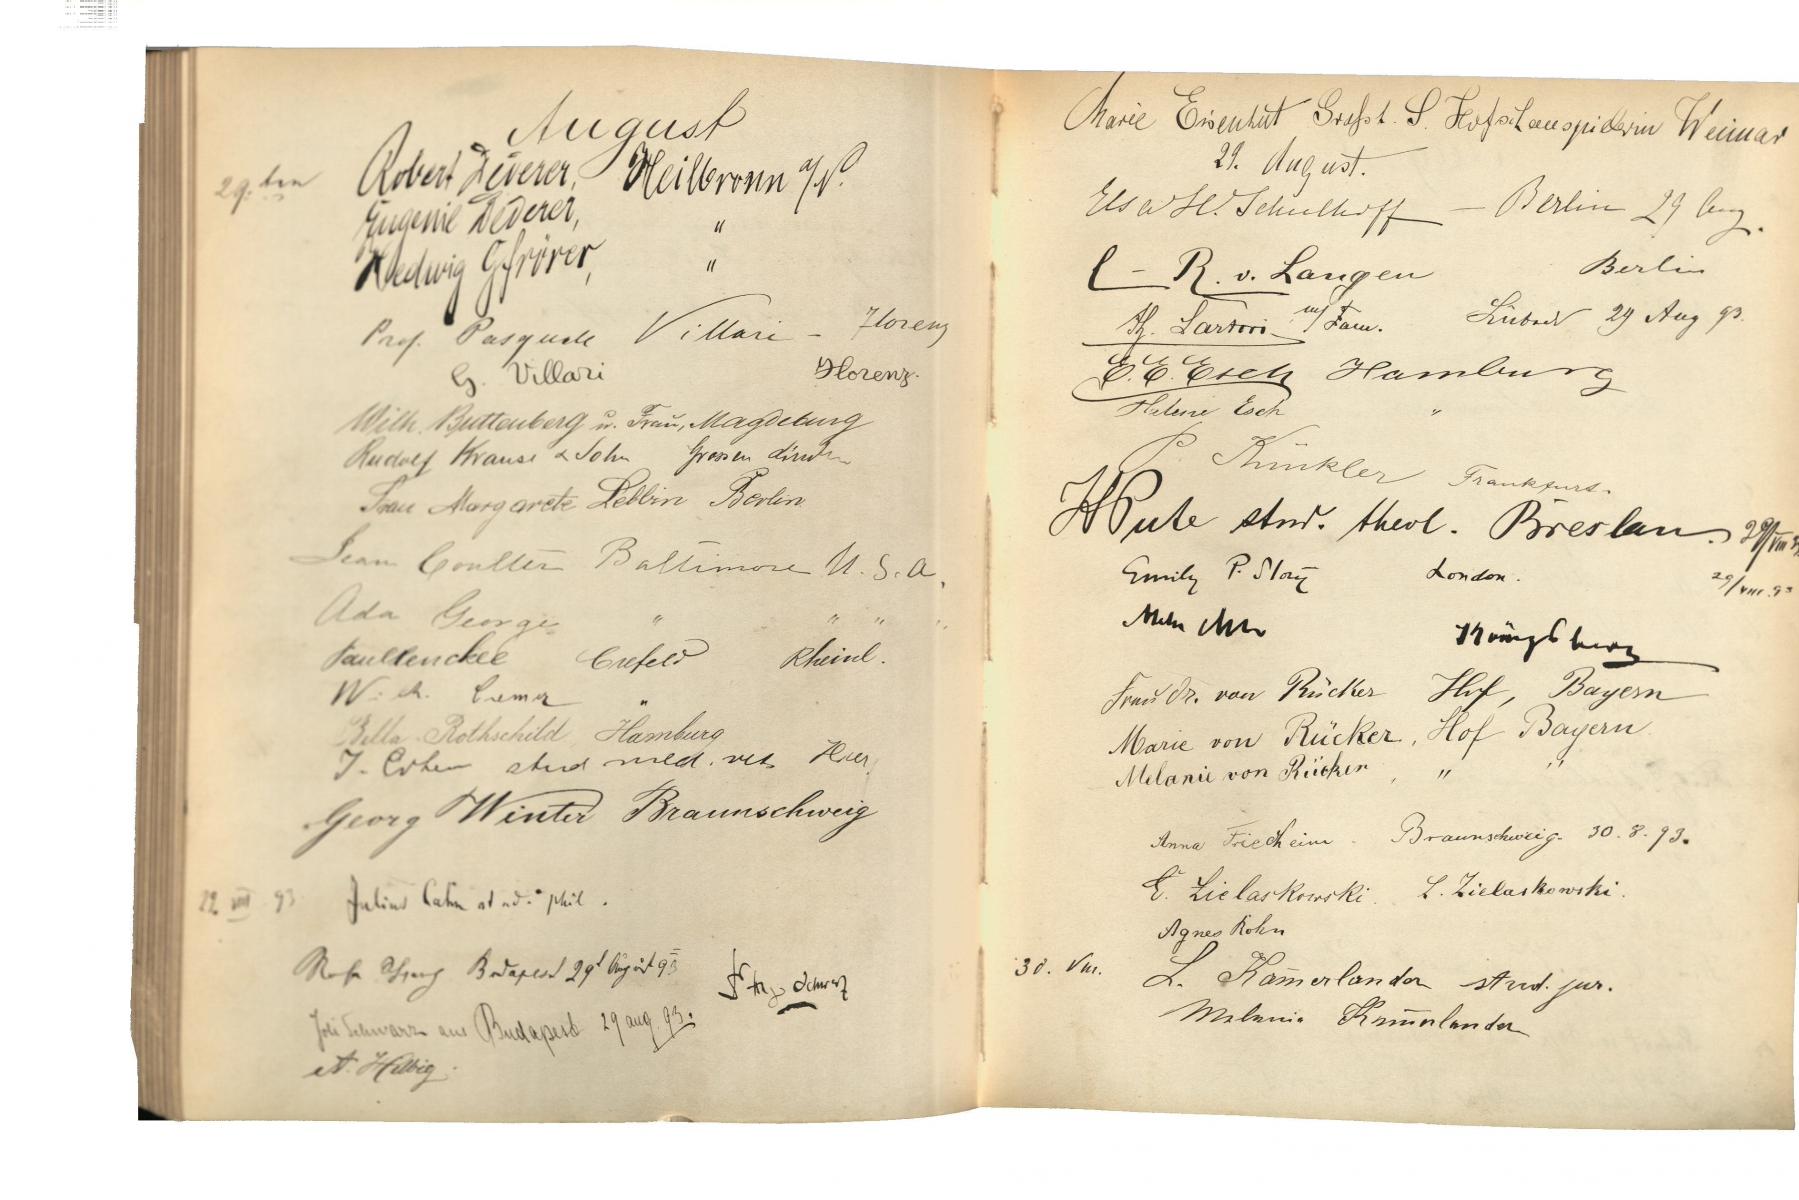 August
29. ten Robert Dederer, Heilbronn a/N.
Eugenie Dederer, "
Hedwig Gfrörer, "
Prof. Pasquale Villari – Florenz
G. Villari Florenz.
Wilh. Buttenberg u. Frau, Magdeburg
Rudolf Krause & Sohn Grossen
Frau Margarete Lebbin Berlin
Jean Coulter Baltimore U.S.A.
Ada George " " " "
Crefeld Rheinl.
"
Bella Rothschild, Hamburg
J. Cohen stud med. vet. Hier.
Georg Winter Braunschweig
VIII 93 Julius Cahn stud. phil.
Budapest 29t August 93
Schwarz aus Budapest 29 aug. 93.
A. Helbig.
Marie Eisenhut Grossh. S. Hofschauspielerin Weimar
29. August.
Elsa W. Schulhoff – Berlin 29 Aug.
C – R. v. Langen Berlin
Th. Sartori m/ Fam. Lübeck 29 Aug 93.
E. E. Esch Hamburg
Helene Esch "
P. Künkler Frankfurt.
H Pute stud. theol. Breslau. 29/VIII 93
Emily P. Story London. 29/VIII. 93
Königsberg
Frau Dr. von Rücker Hof, Bayern
Marie von Rücker, Hof Bayern
Melanie von Rücker, " "
Anna Friedheim. Braunschweig. 30. 8. 93.
E. Zielaskowski. L. Zielaskowski.
Agnes Kohn
30. VIII. L. Kamerlander stud. jur.
Melanie Kamerlander